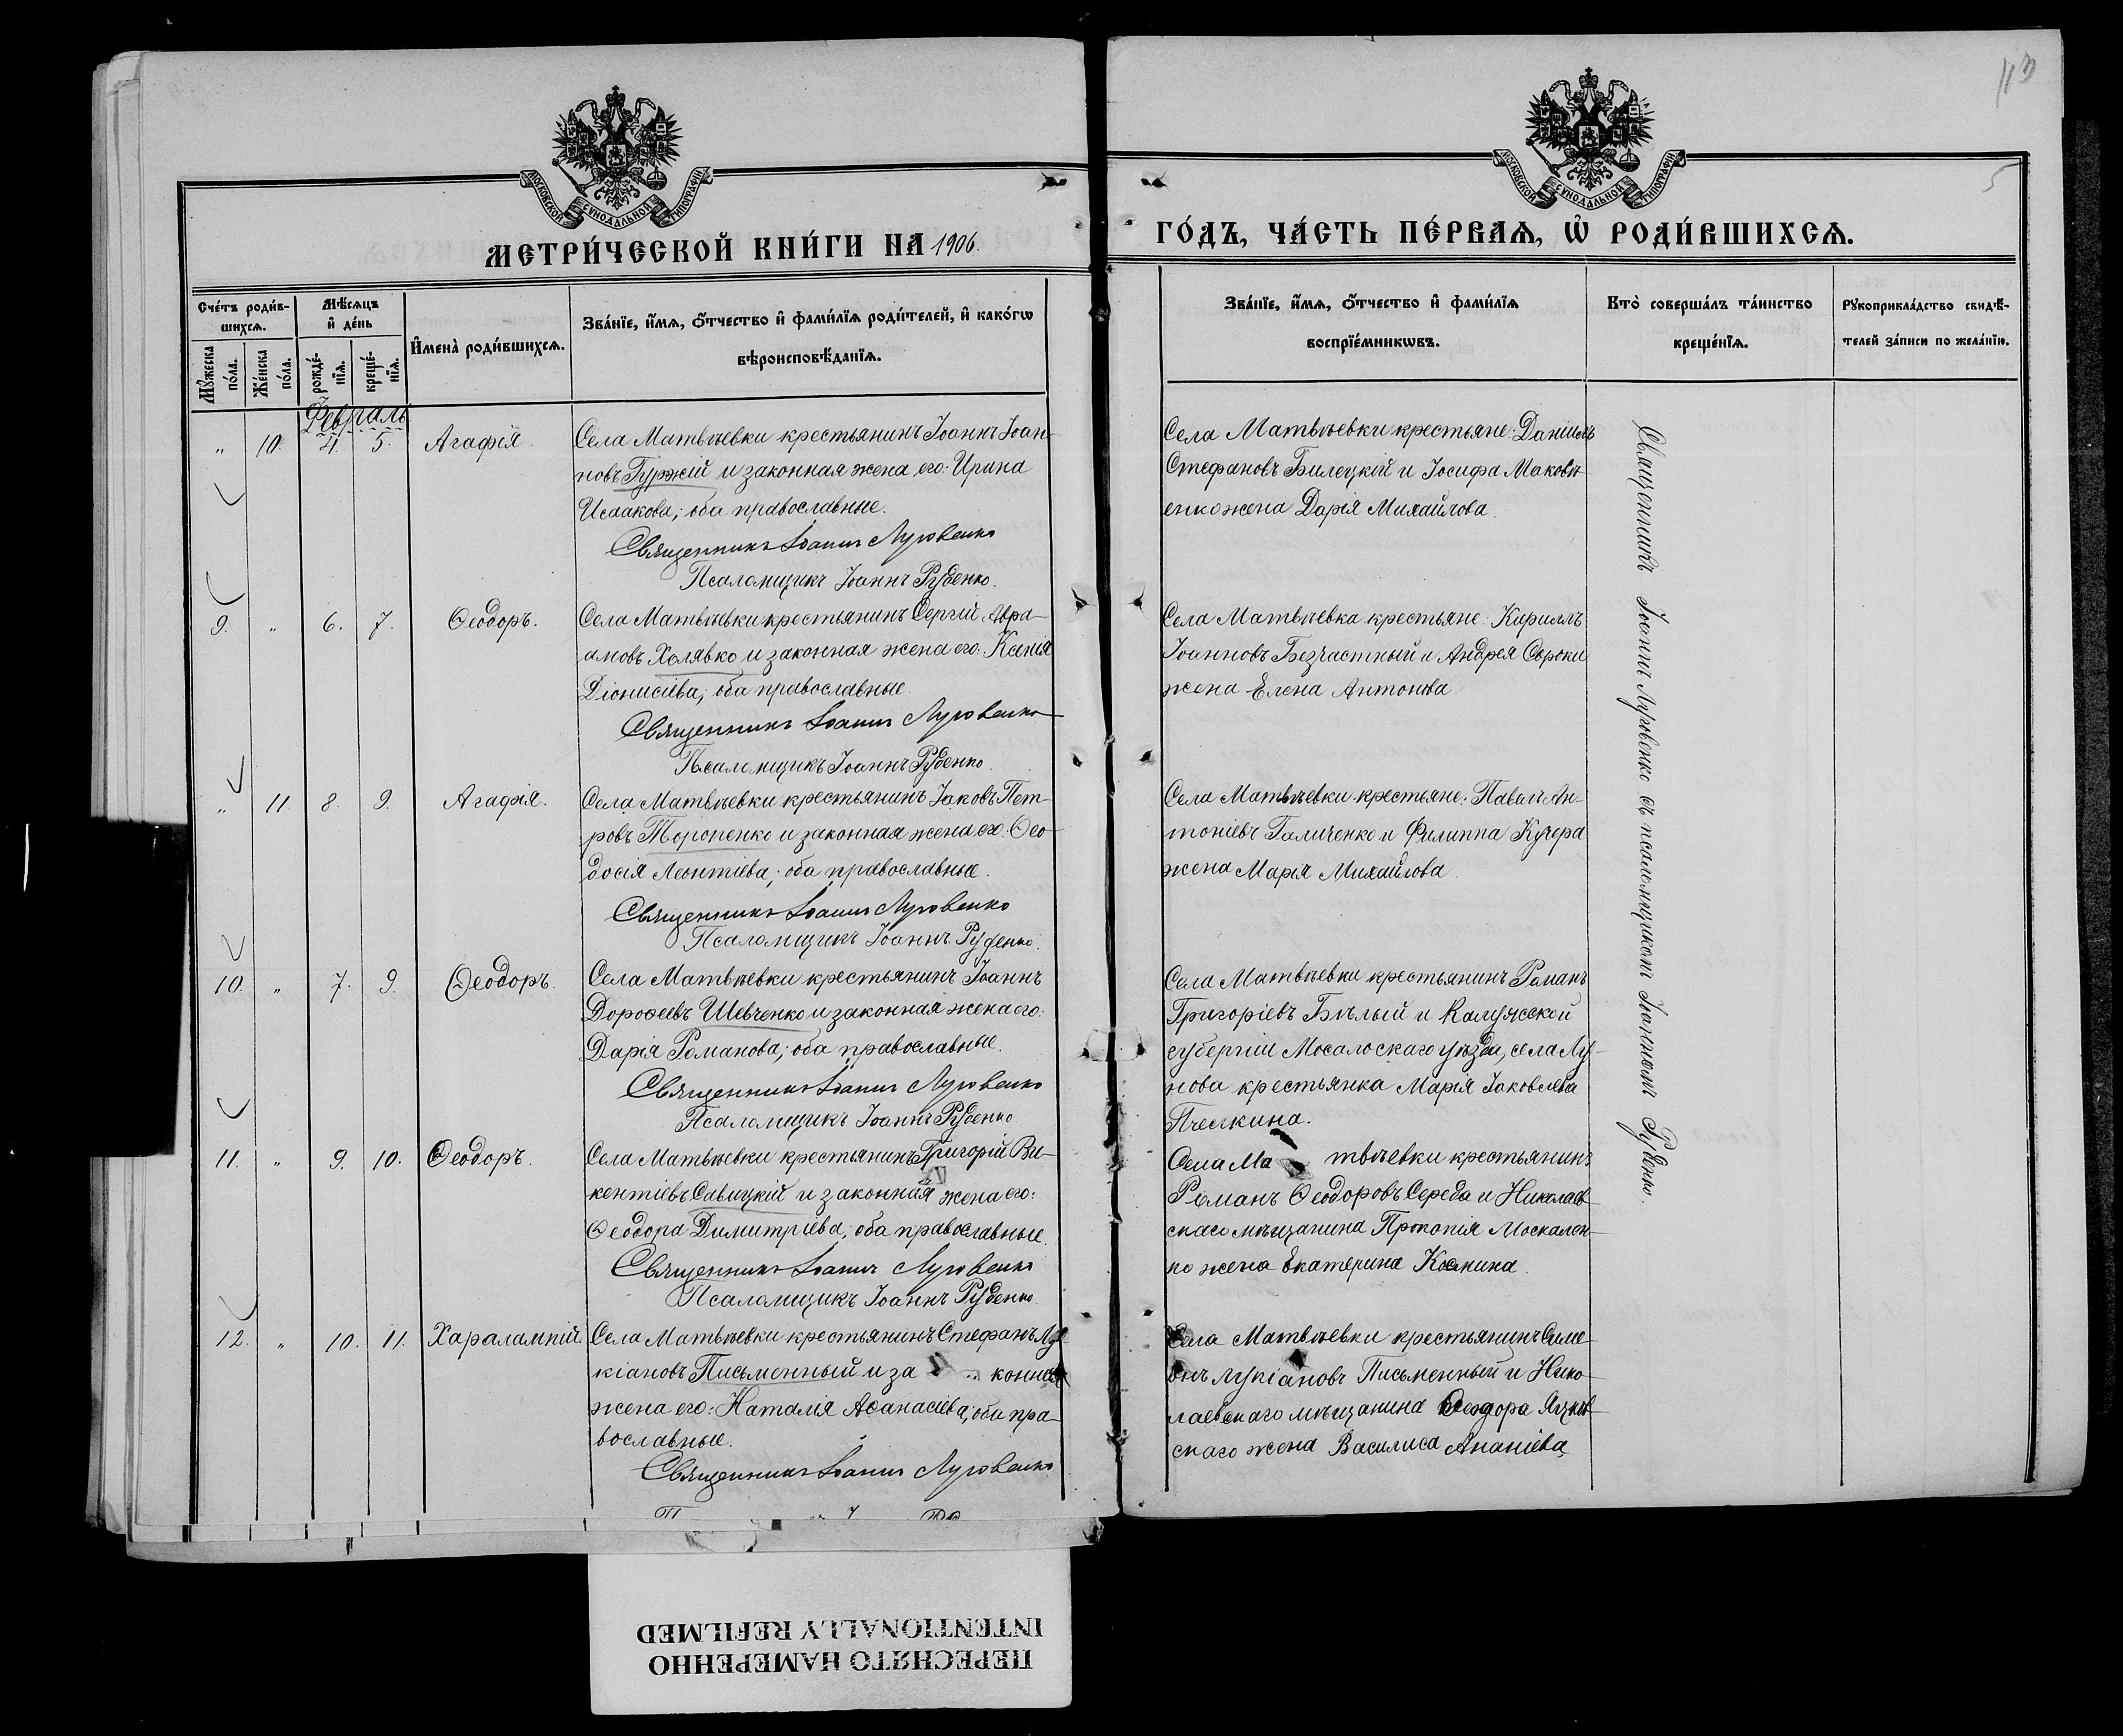 113
5
МОСКОВСКОЙ СУНОДАЛЬНОЙ ТИПОГРАФІИ
МОСКОВСКОЙ СУНОДАЛЬНОЙ ТИПОГРАФІИ
МЕТРИ́ЧЕСКОЙ КНИ́ГИ НА 1906.
ГО́ДЪ, ЧА́СТЬ ПЕ́РВАѦ, Ѡ҆ РОДИ́ВШИХСѦ.
Сче́тъ роди́в-
шихсѧ.
Мѣ́сѧцъ
и҆ де́нь
Мꙋ́жеска
по́ла.
Же́нска
по́ла.
рожде́-
нїѧ.
креще́-
нїѧ.
И҆мена̀ роди́вшихсѧ.
Зва́нїе, и҆́мѧ, ѻ҆́тчество и҆ фами́лїѧ роди́телей, и҆ како́гѡ
вѣроисповѣ́данїѧ.
Зва́нїе, и҆́мѧ, ѻ҆́тчество и҆ фами́лїѧ
воспрїе́мникѡвъ.
Кто̀ соверша́лъ та́инство
креще́нїѧ.
Рꙋкоприкла́дство свидѣ́-
телей за́писи по жела́нїю.
Февраль
" 10. 4. 5. Агафія.
Села Матвѣевки крестьянинъ Іоаннъ Іоан-
новъ Гуржій и законная жена его: Ирина
Исаакова; оба православные.
Священникъ Іоаннъ Луговенко
Псаломщикъ Іоаннъ Руденко.
Села Матвѣевки крестьяне: Даніилъ
Стефановъ Билецкій и Іосифа Маковѣ-
енко жена Дарія Михайлова.
9. " 6. 7. Ѳеодоръ.
Села Матвѣевки крестьянинъ Сергій Авра-
амовъ Холявко и законная жена его: Ксенія
Діонисіева; оба православные.
Священникъ Іоаннъ Луговенко
Псаломщикъ Іоаннъ Руденко.
Села Матвѣевка крестьяне: Кириллъ
Іоанновъ Безчастный и Андрея Сороки
жена Елена Антонова.
" 11. 8. 9. Агафія.
Села Матвѣевки крестьянинъ Іаковъ Пет-
ровъ Тороненко и законная жена его: Ѳео-
досія Леонтіева; оба православные.
Священникъ Іоаннъ Луговенко
Псаломщикъ Іоаннъ Руденко.
Села Матвѣевки крестьяне: Павелъ Ан-
тоніевъ Галиченко и Филиппа Кучера
жена Марія Михайлова.
10. " 7. 9. Ѳеодоръ.
Села Матвѣевки крестьянинъ Іоаннъ
Дороѳеевъ Шевченко и законная жена его:
Дарія Романова; оба православные.
Священникъ Іоаннъ Луговенко
Псаломщикъ Іоаннъ Руденко
Села Матвѣевки крестьянинъ Романъ
Григоріевъ Бѣлый и Калужской
губерніи Мосальскаго уѣзда, села Лу-
нова крестьянка Марія Іаковлева
Пчелкина.
11. " 9. 10. Ѳеодоръ.
Села Матвѣевки крестьянинъ Григорій Ви-
кентіевъ Савицкій и законная жена его:
Ѳеодора Димитріева; оба православные.
Священникъ Іоаннъ Луговенко
Псаломщикъ Іоаннъ Руденко.
Села Матвѣевки крестьянинъ
Романъ Ѳеодоровъ Середа и Николаев-
скаго мѣщанина Прокопія Москален-
ко жена Екатерина Космина.
12. " 10. 11. Харалампій.
Села Матвѣевки крестьянинъ Стефанъ Лу-
кіановъ Письменный и за " конная
жена его: Наталія Аѳанасіева; оба пра-
вославные.
Священникъ Іоаннъ Луговенко
Села Матвѣевки крестьянинъ Симе-
онъ Лукіановъ Письменный и Нико-
лаевскаго мѣщанина Ѳеодора Яцков-
скаго жена Василиса Ананіева
Священникъ Іоаннъ Луговенко съ псаломщикомъ Іоанномъ Руденко.
ПЕРЕСНЯТО НАМЕРЕННО
INTENTIONALLY REFILMED